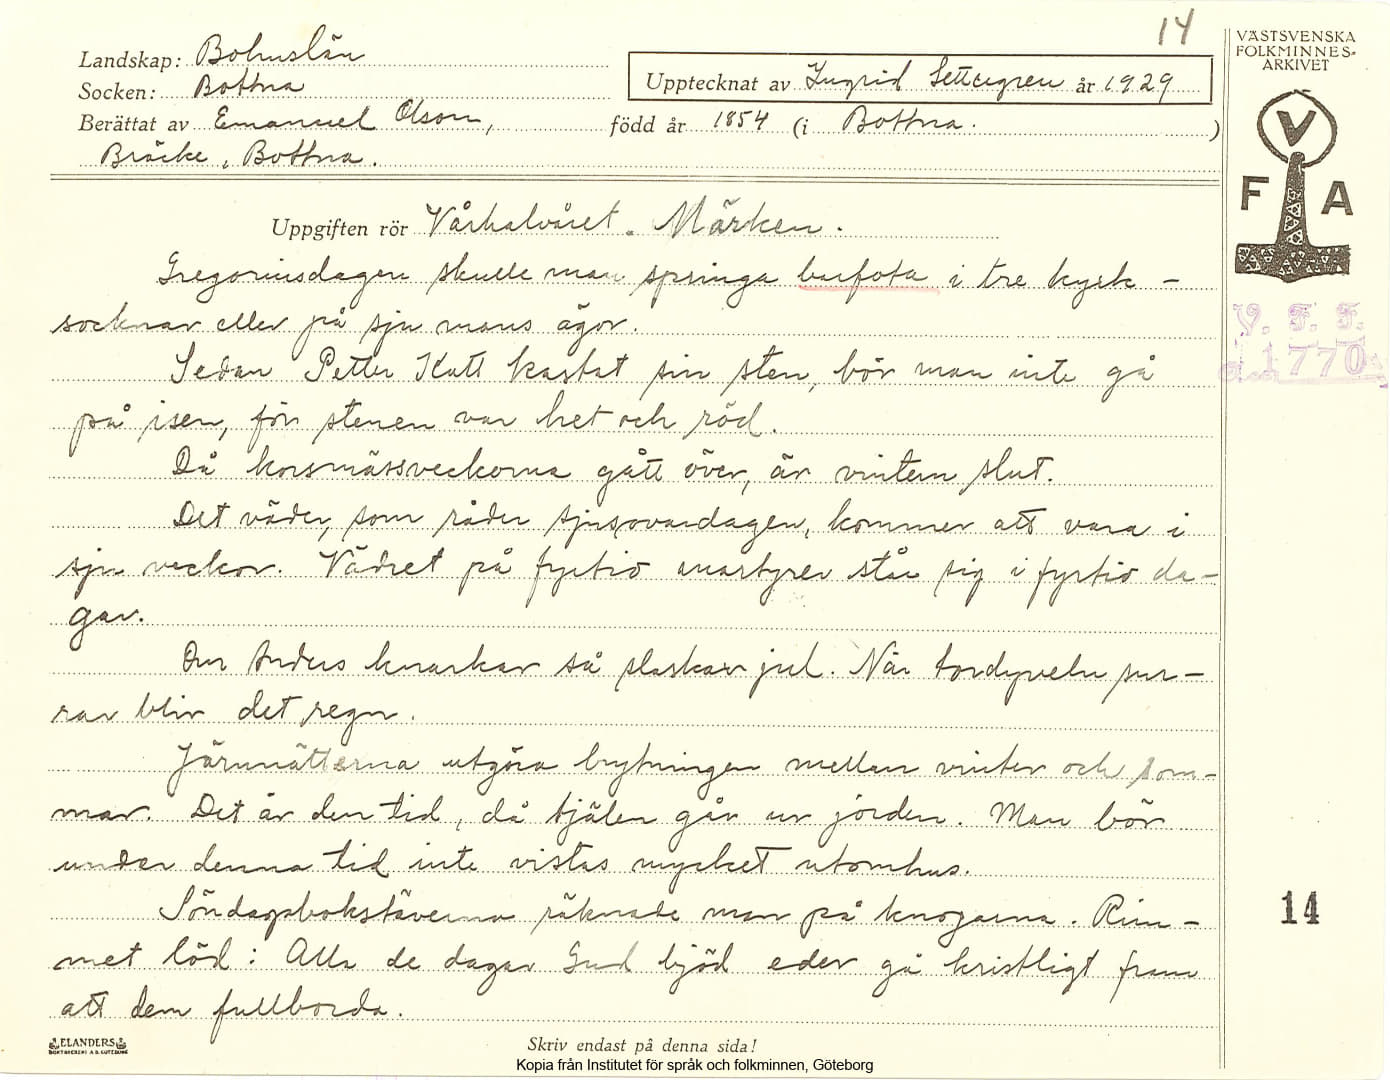 14
VÄSTSVENSKA
FOLKMINNES-
ARKIVET
Landskap: Bohuslän
Socken: Bottna
Upptecknat av Ingrid Settergren år 1929
Berättat av Emanuel Olson, född år 1854 (i Bottna.)
Bräcke, Bottna.
V
F A
Uppgiften rör Vårhalvåret. Märken.
Gregoriusdagen skulle man springa barfota i tre kyrk-
socknar eller på sju mans ägor.
V. F. F.
1770
Sedan Petter Katt kastat sin sten, bör man inte gå
på isen, för stenen var het och röd.
Då korsmässveckorna gått över, är vintern slut.
Det väder, som råder sjusovardagen, kommer att vara i
sju veckor. Vädret på fyrtio martyrer står sig i fyrtio da-
gar.
Om Anders knarkar så slaskar jul. När tordyveln sur-
rar blir det regn.
Järnnätterna utgöra brytningen mellan vinter och som-
mar. Det är den tid, då tjälen går ur jorden. Man bör
under denna tid inte vistas mycket utomhus.
Söndagsbokstäverna räknade man på knogarna. Rim-
14
met löd: Alla de dagar Gud bjöd eder gå kristligt fram
att dem fullborda.
ELANDERS
BOKTRYCKERI A.B. GÖTEBORG
Skriv endast på denna sida!
Kopia från Institutet för språk och folkminnen, Göteborg